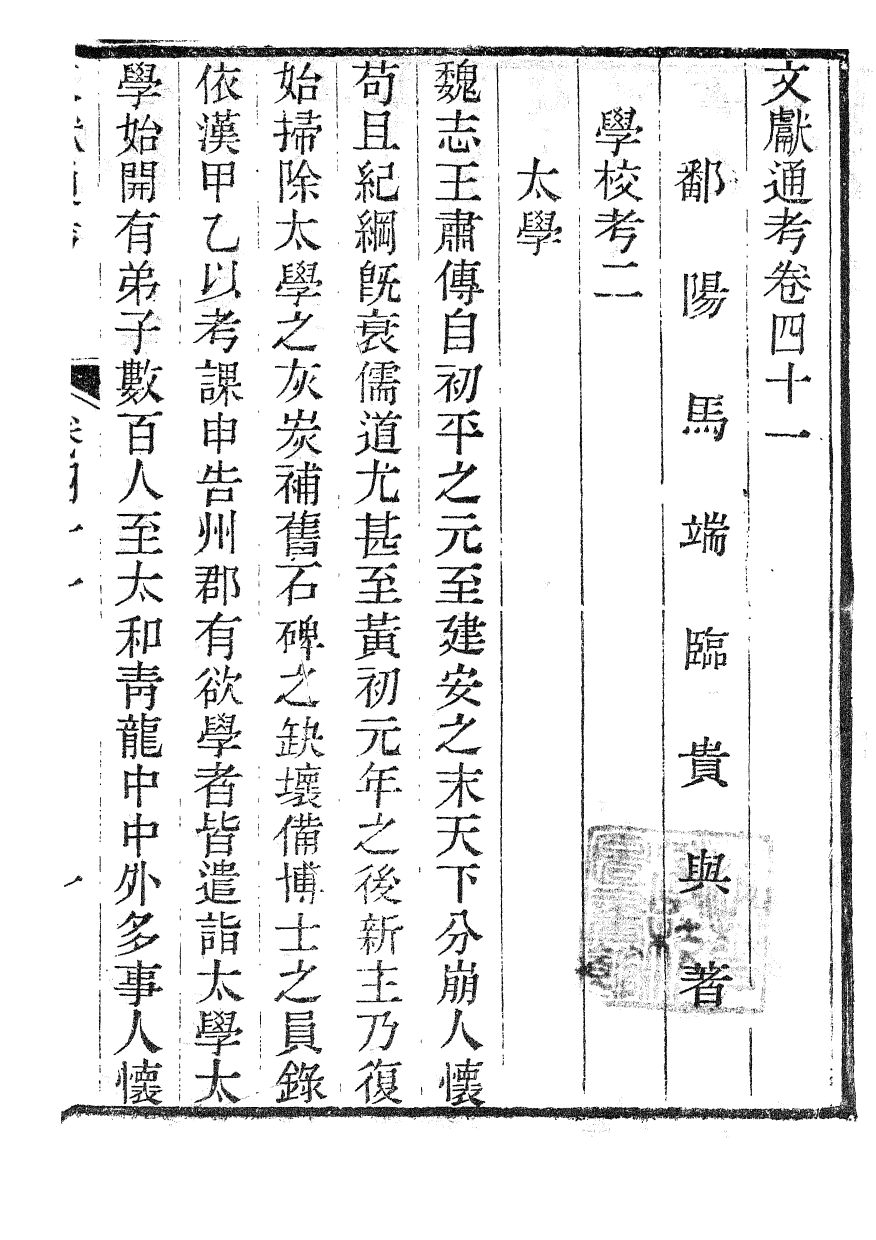 文獻通考卷四十一
鄱陽馬端臨貴與著
學校考二
太學
魏志王肅傳自初平之元至建安之末天下分崩人懷
苟且紀綱旣衰儒道尤甚至黃初元年之後新主乃復
始掃除太學之灰炭補舊石碑之缺壞備博士之員錄
依漢甲乙以考課申告州郡有欲學者皆遣詣太學太
學始開有弟子數百人至太和靑龍中中外多事人懷